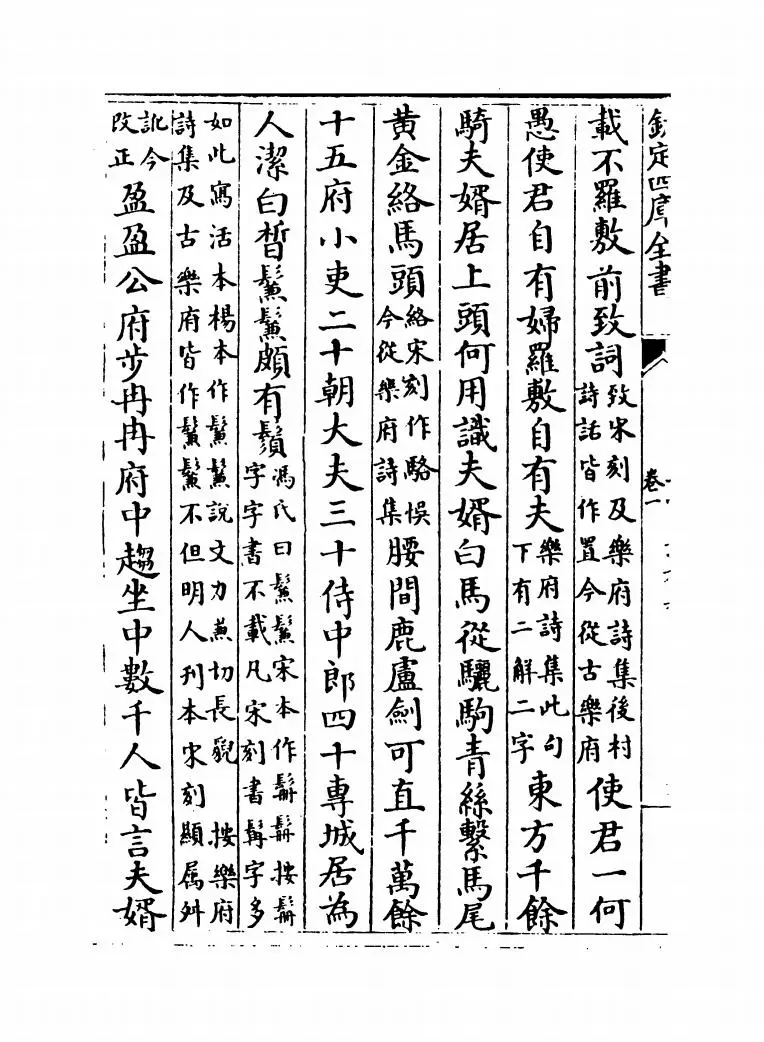 欽定四庫全書 卷一
載不羅敷前致詞致宋刻及樂府詩集後村詩話皆作置今從古樂府使君一何
愚使君自有婦羅敷自有夫樂府詩集此句下有二解二字東方千餘
騎夫婿居上頭何用識夫婿白馬從驪駒青絲繫馬尾
黃金絡馬頭絡宋刻作駱悞今從樂府詩集腰間鹿盧劍可直千萬餘
十五府小吏二十朝大夫三十侍中郎四十專城居為
人潔白晳鬑鬑頗有鬚馮氏曰鬑鬑宋本作按字字書不載凡宋刻書髯字多
如此寫活本楊本作鬑鬑說文力兼切長貌 按樂府詩集及古樂府皆作鬑鬑不但明人刊本宋刻顯屬舛
訛今改正盈盈公府步冉冉府中趨坐中數千人皆言夫婿